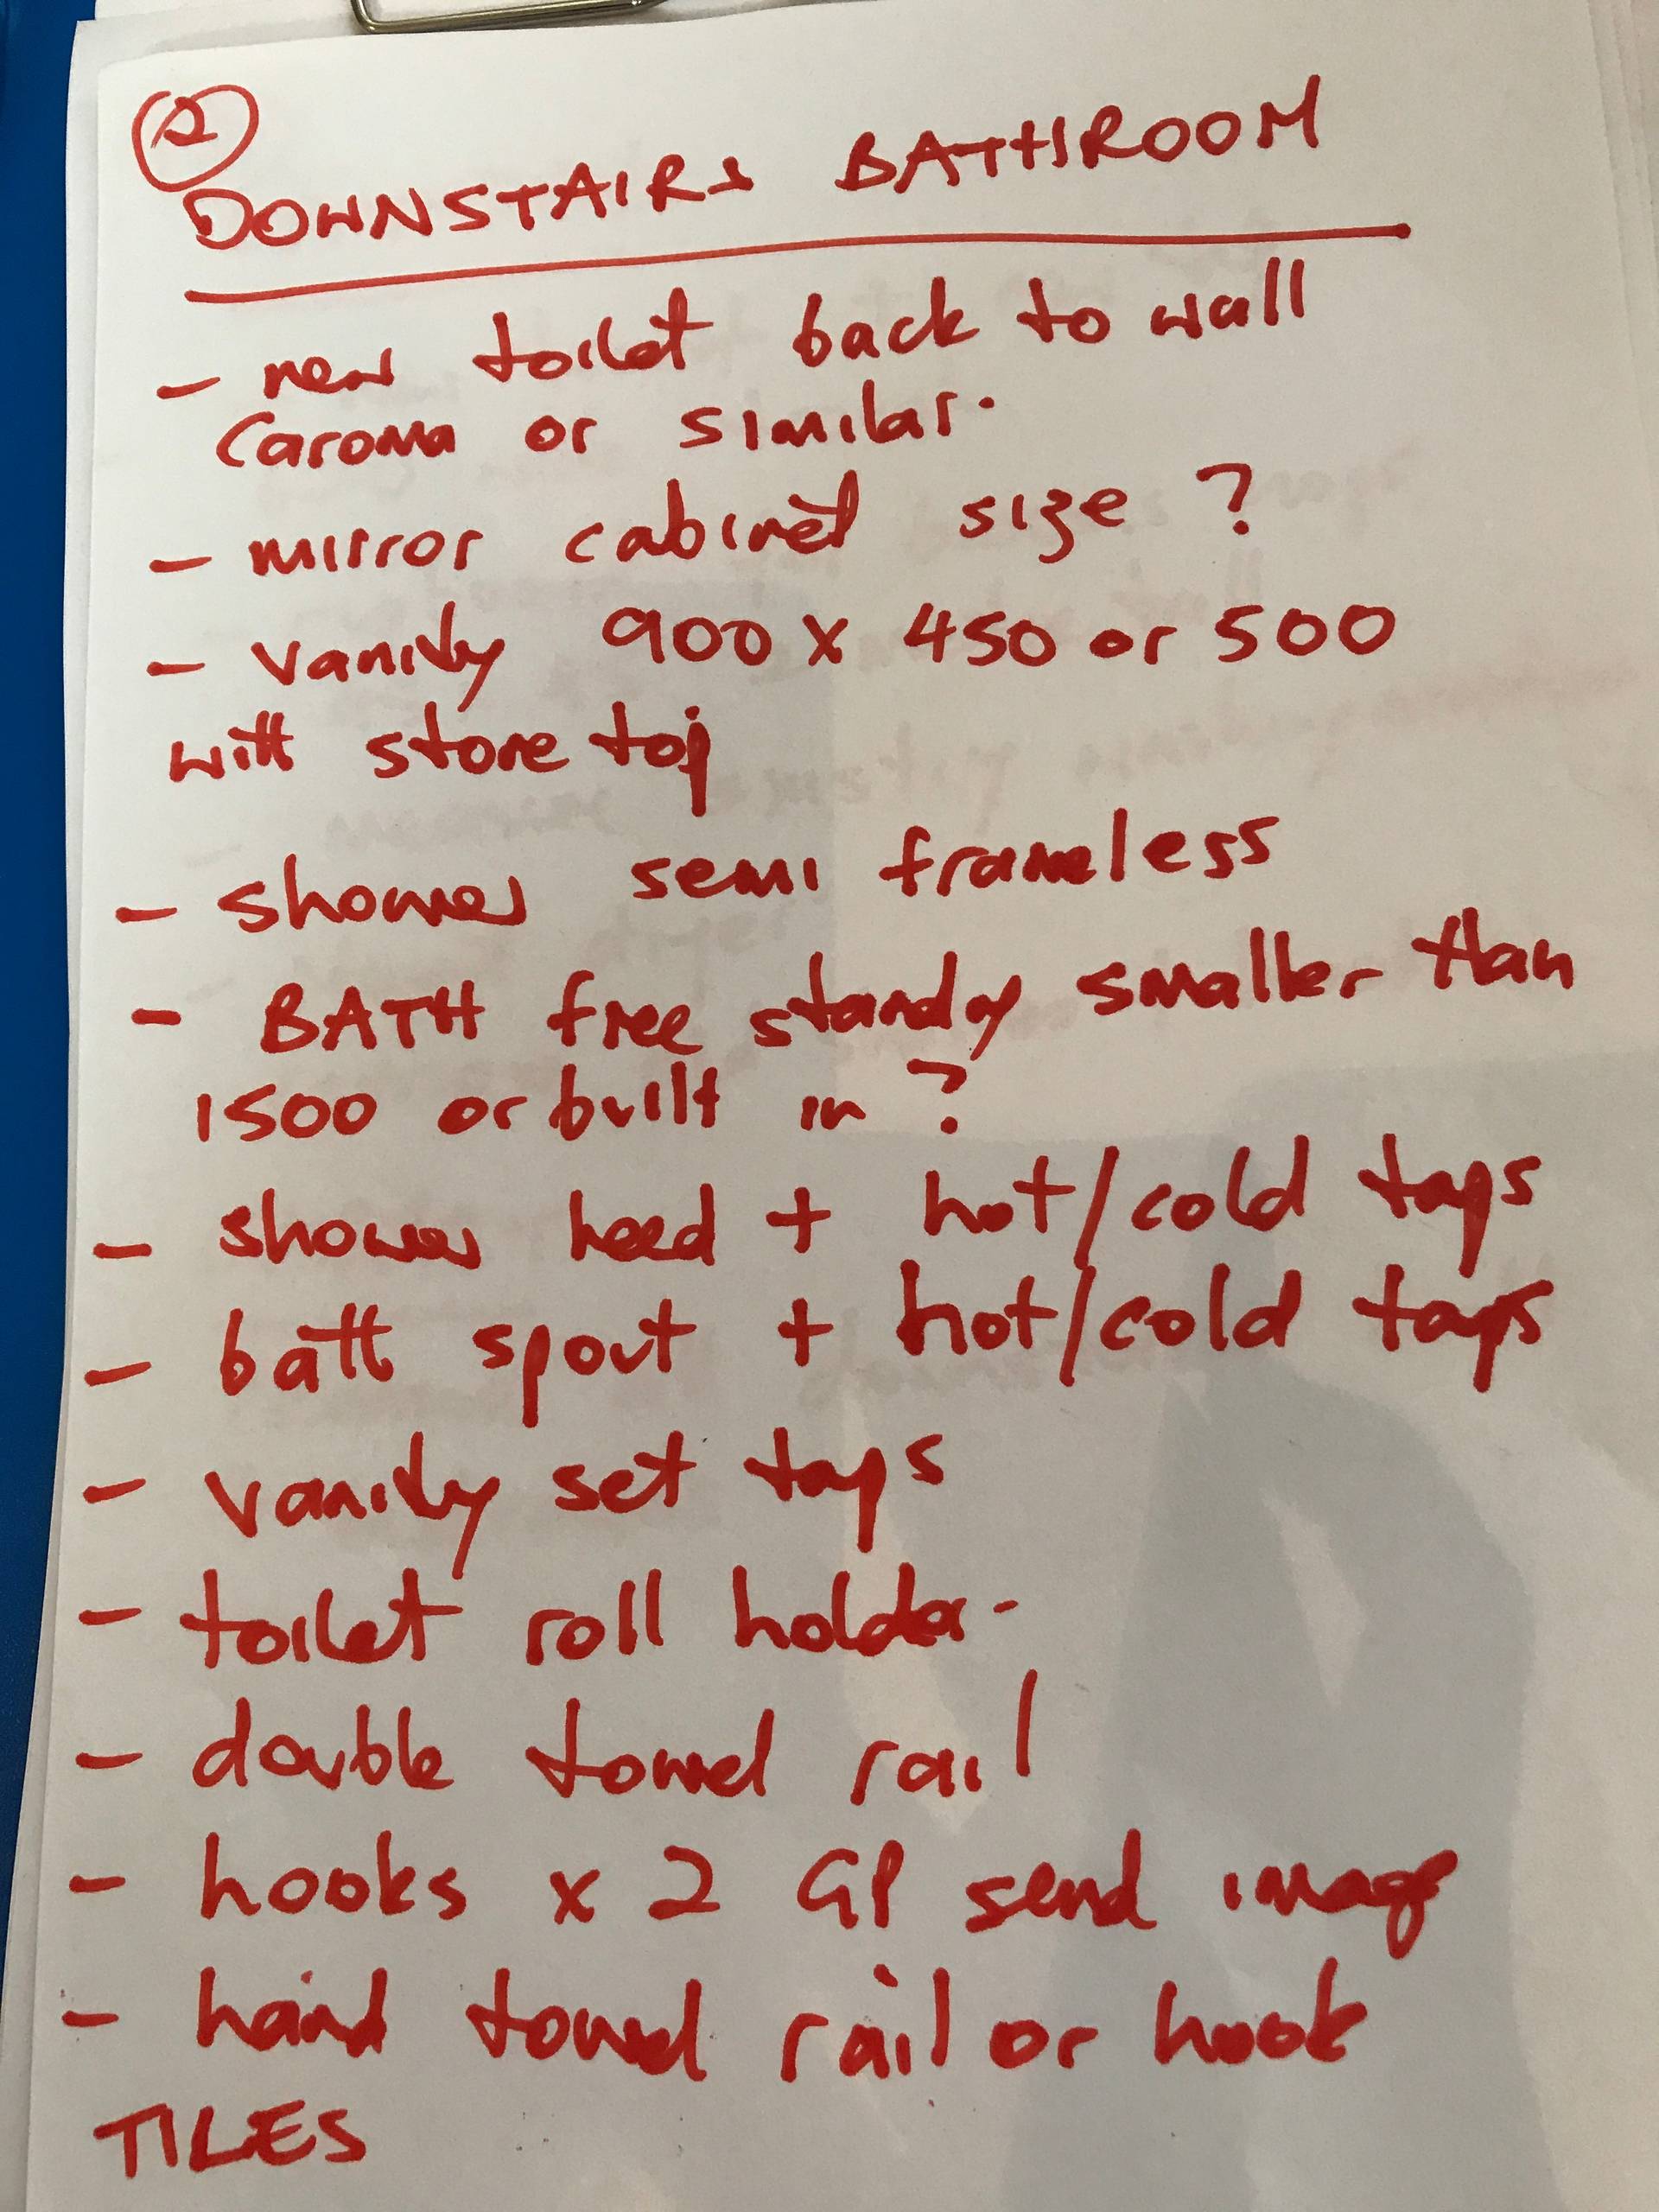 2
DOWNSTAIRS BATHROOM
- new toilet back to wall
Caroma or similar.
- mirror cabinet size ?
- vanity 900 x 450 or 500
with stone top
- shower semi frameless
- BATH free standing smaller than
1500 or built in ?
- shower head + hot/cold taps
- bath spout + hot/cold taps
- vanity set taps
- toilet roll holder -
- double towel rail
- hooks x 2 GP send image
- hand towel rail or hook
TILES